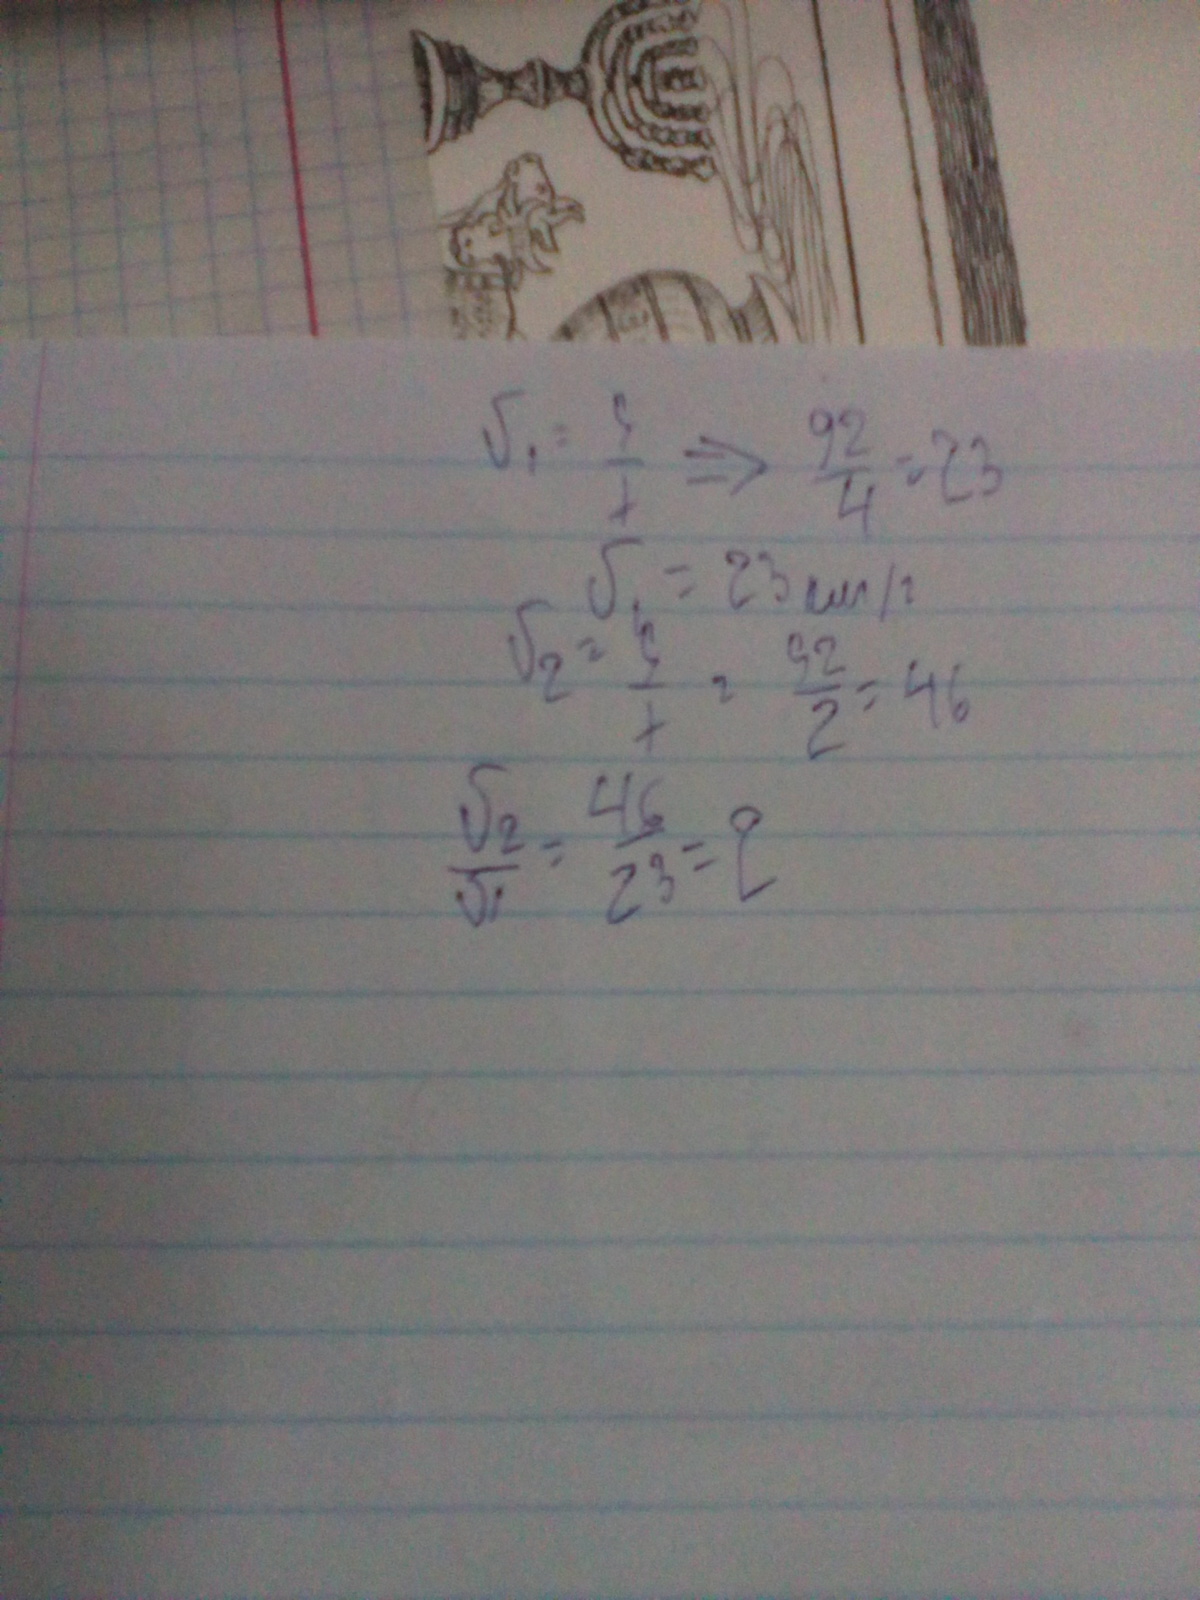 V₁ = S/t ⇒ 92/4 = 23
V₁ = 23 км/г
V₂ = S/t = 92/2 = 46
V₂/V₁ = 46/23 = 2